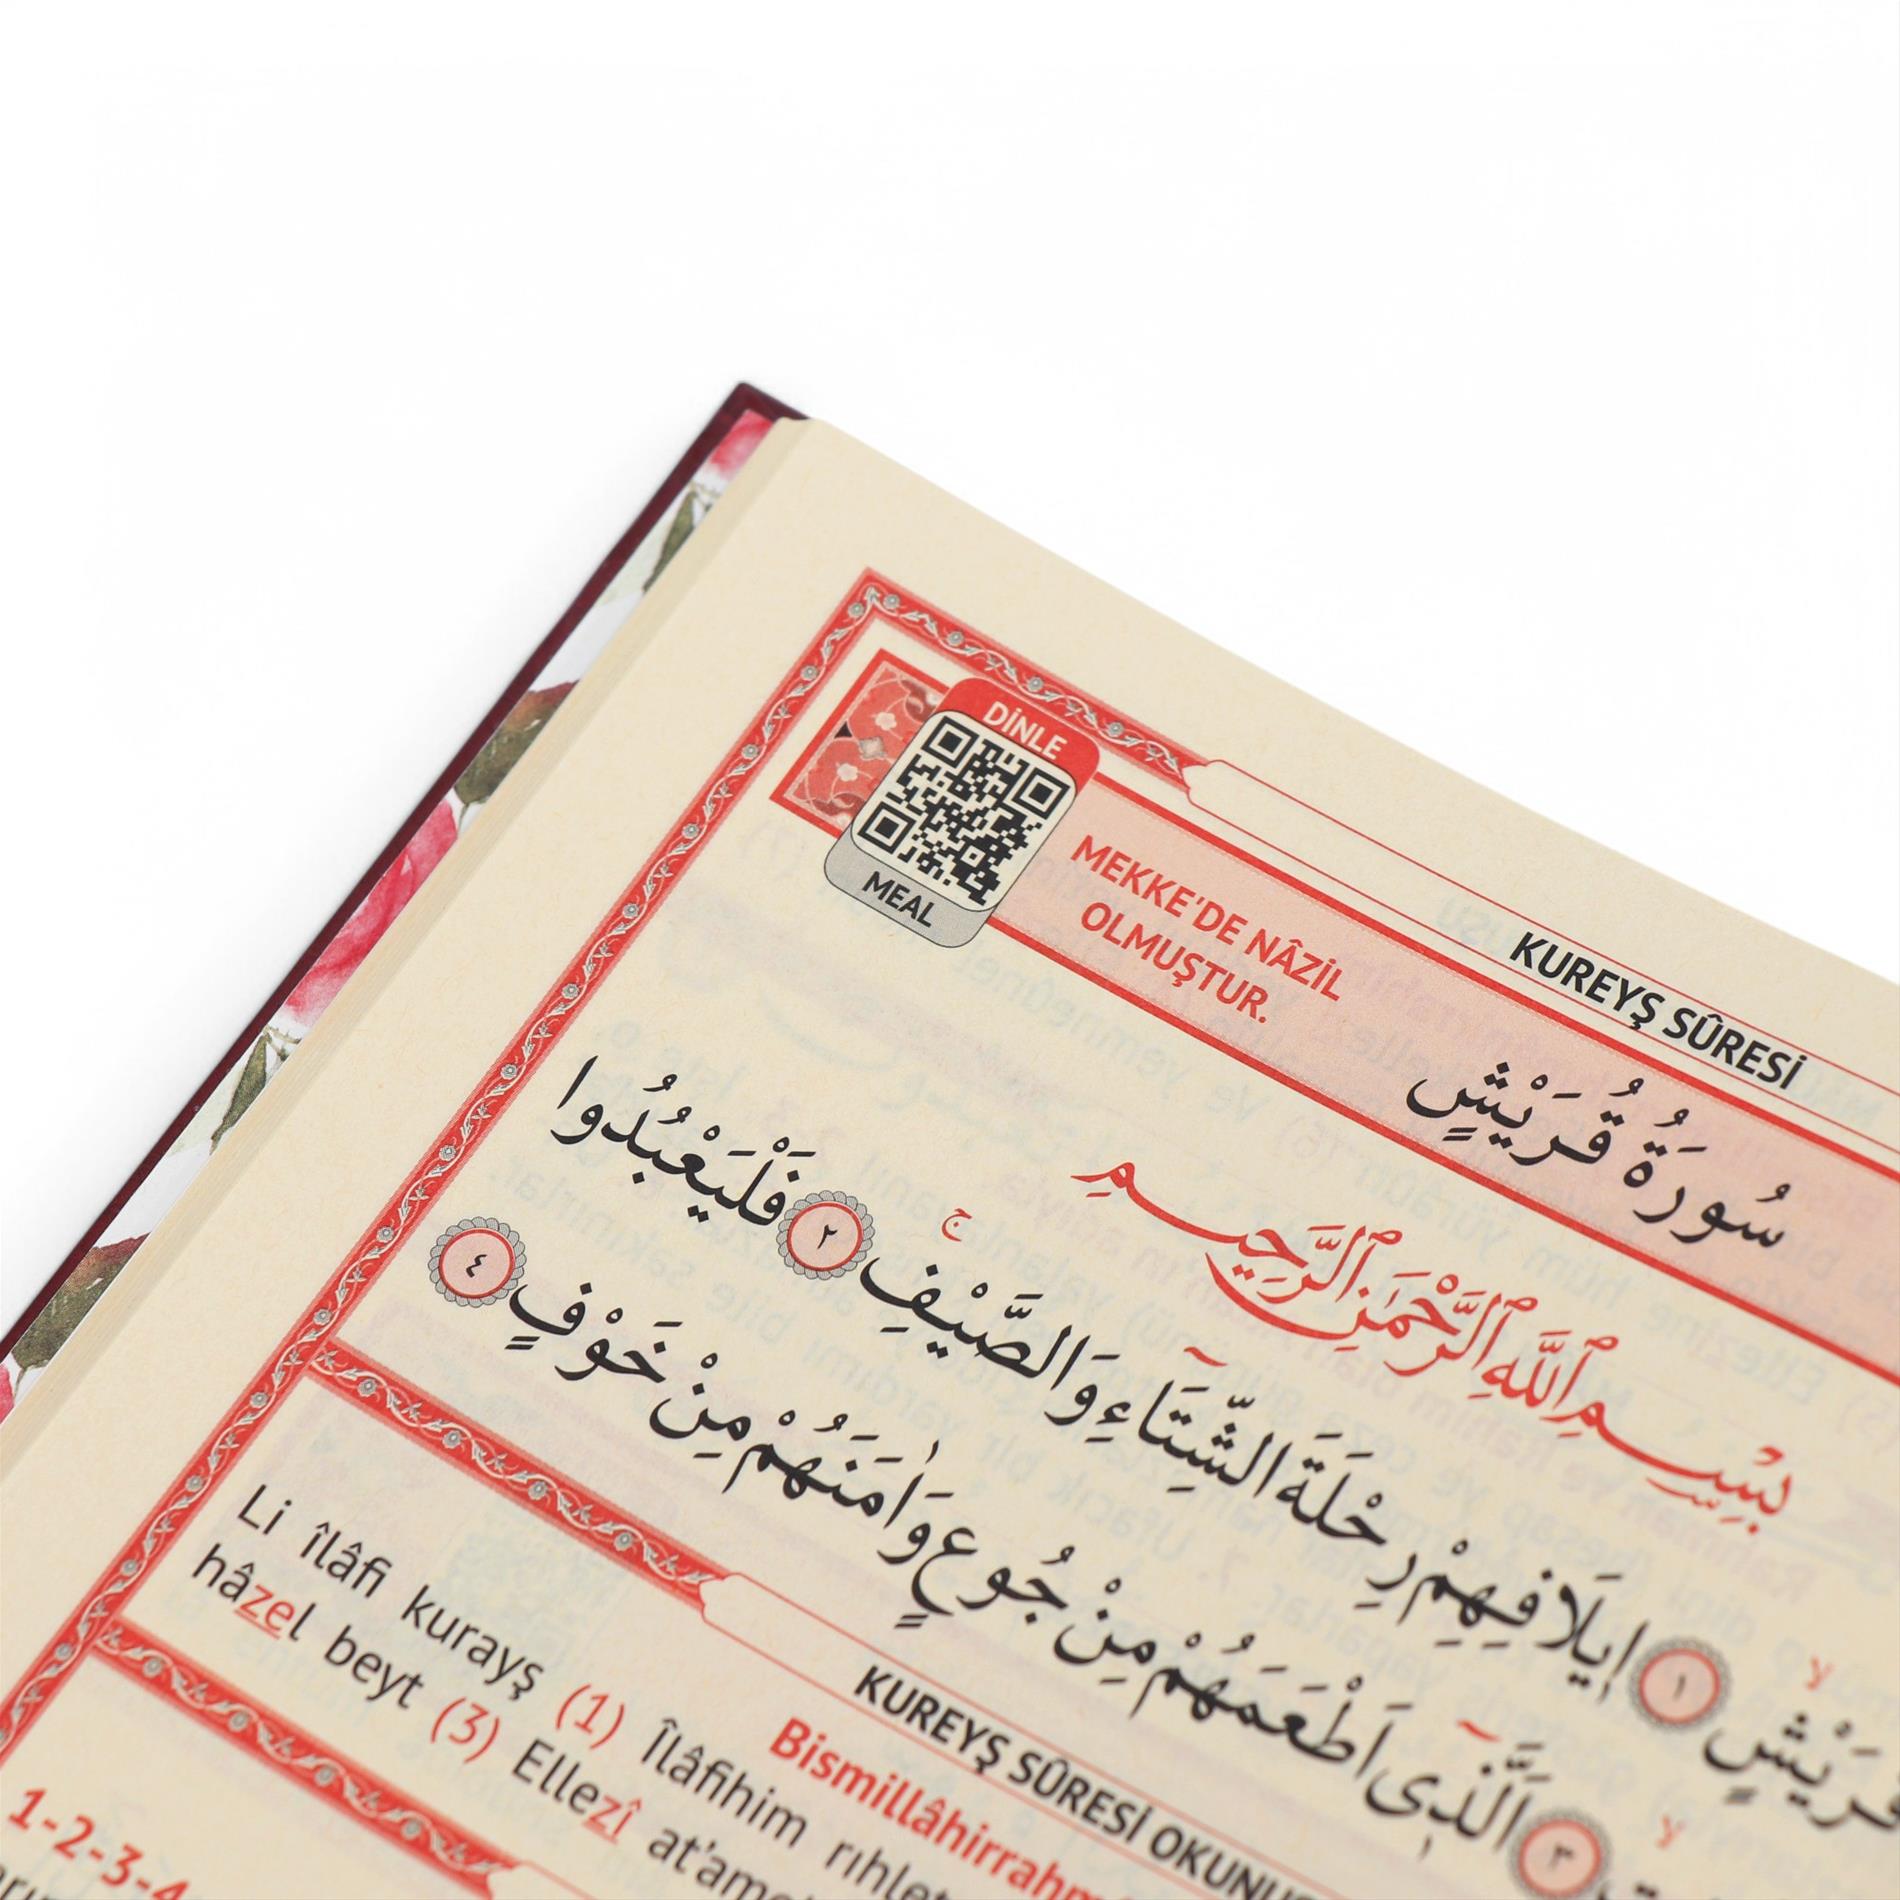 KUREYŞ SÛRESİ
DİNLE
MEAL
MEKKE'DE NÂZİL
OLMUŞTUR.
سُورَةُ قُرَيْشٍ
بِسْمِ ٱللَّهِ ٱلرَّحْمَٰنِ ٱلرَّحِيمِ
قُرَيْشٍۙ ﴿١﴾ اٖيلَافِهِمْ رِحْلَةَ الشِّتَٓاءِ وَالصَّيْفِۚ ﴿٢﴾ فَلْيَعْبُدُوا
﴿٣﴾ اَلَّذٖٓي اَطْعَمَهُمْ مِنْ جُوعٍ وَاٰمَنَهُمْ مِنْ خَوْفٍ ﴿٤﴾
KUREYŞ SÛRESİ
Bismillâhirrahm
Li îlâfi kurayş (1) Îlâfihim rıhlet
hâzel beyt (3) Ellezî at'ame
1-2-3-4